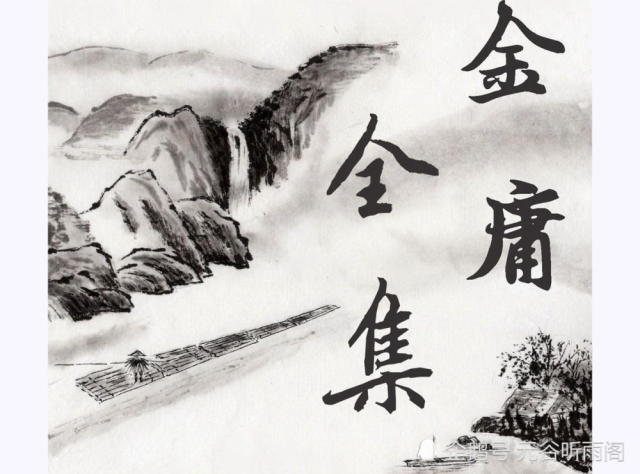 金庸
全集
企鹅号 无谷听雨阁